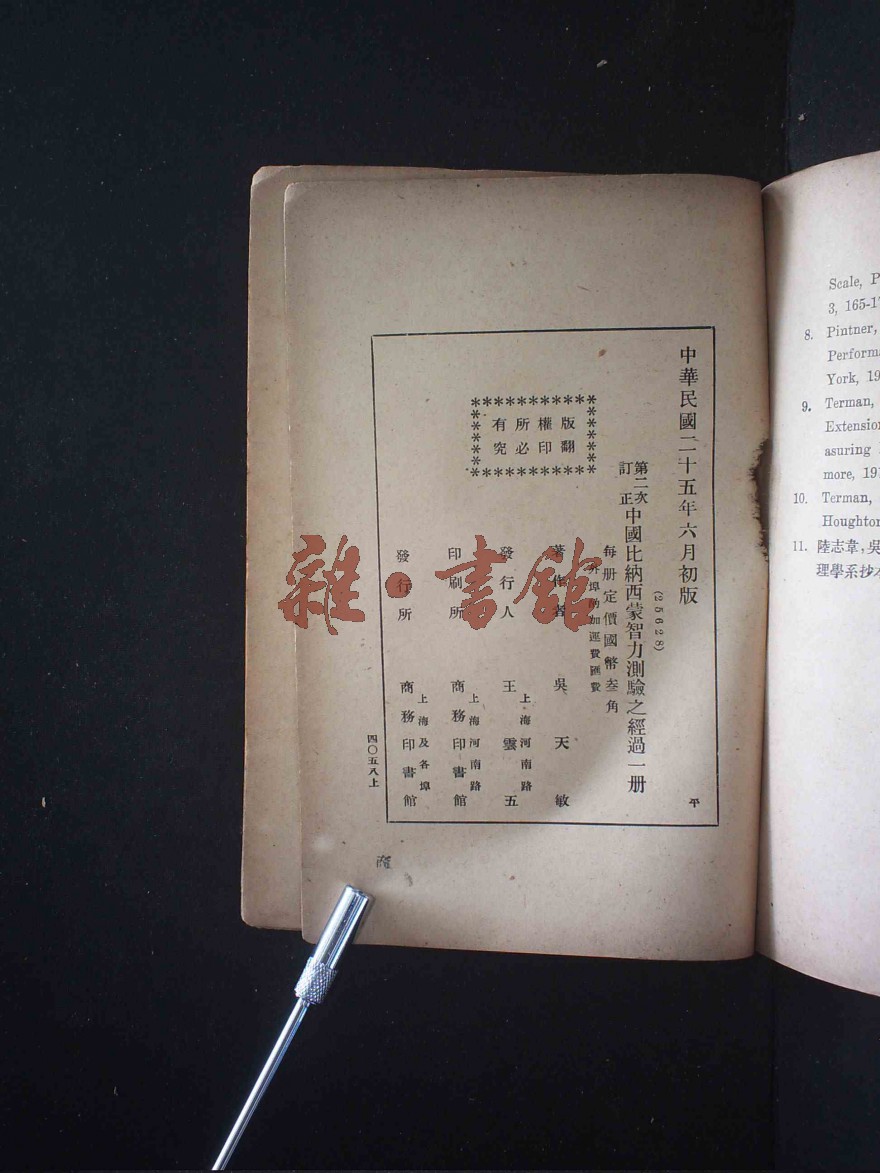 中華民國二十五年六月初版
(25628)
第二次訂正中國比納西蒙智力測驗之經過一册
每册定價國幣叁角
外埠酌加運費匯費
版權所有
翻印必究
著作者 吳天敏
發行人 王雲五
上海河南路
印刷所 商務印書館
上海河南路
發行所 商務印書館
上海及各埠
四〇五八上
平
雜·書館
Scale, P
3, 165-17
8. Pintner,
Performa
York, 19
9. Terman,
Extension
asuring
more, 191
10. Terman,
Houghton
11. 陸志韋,吳
理學系抄本